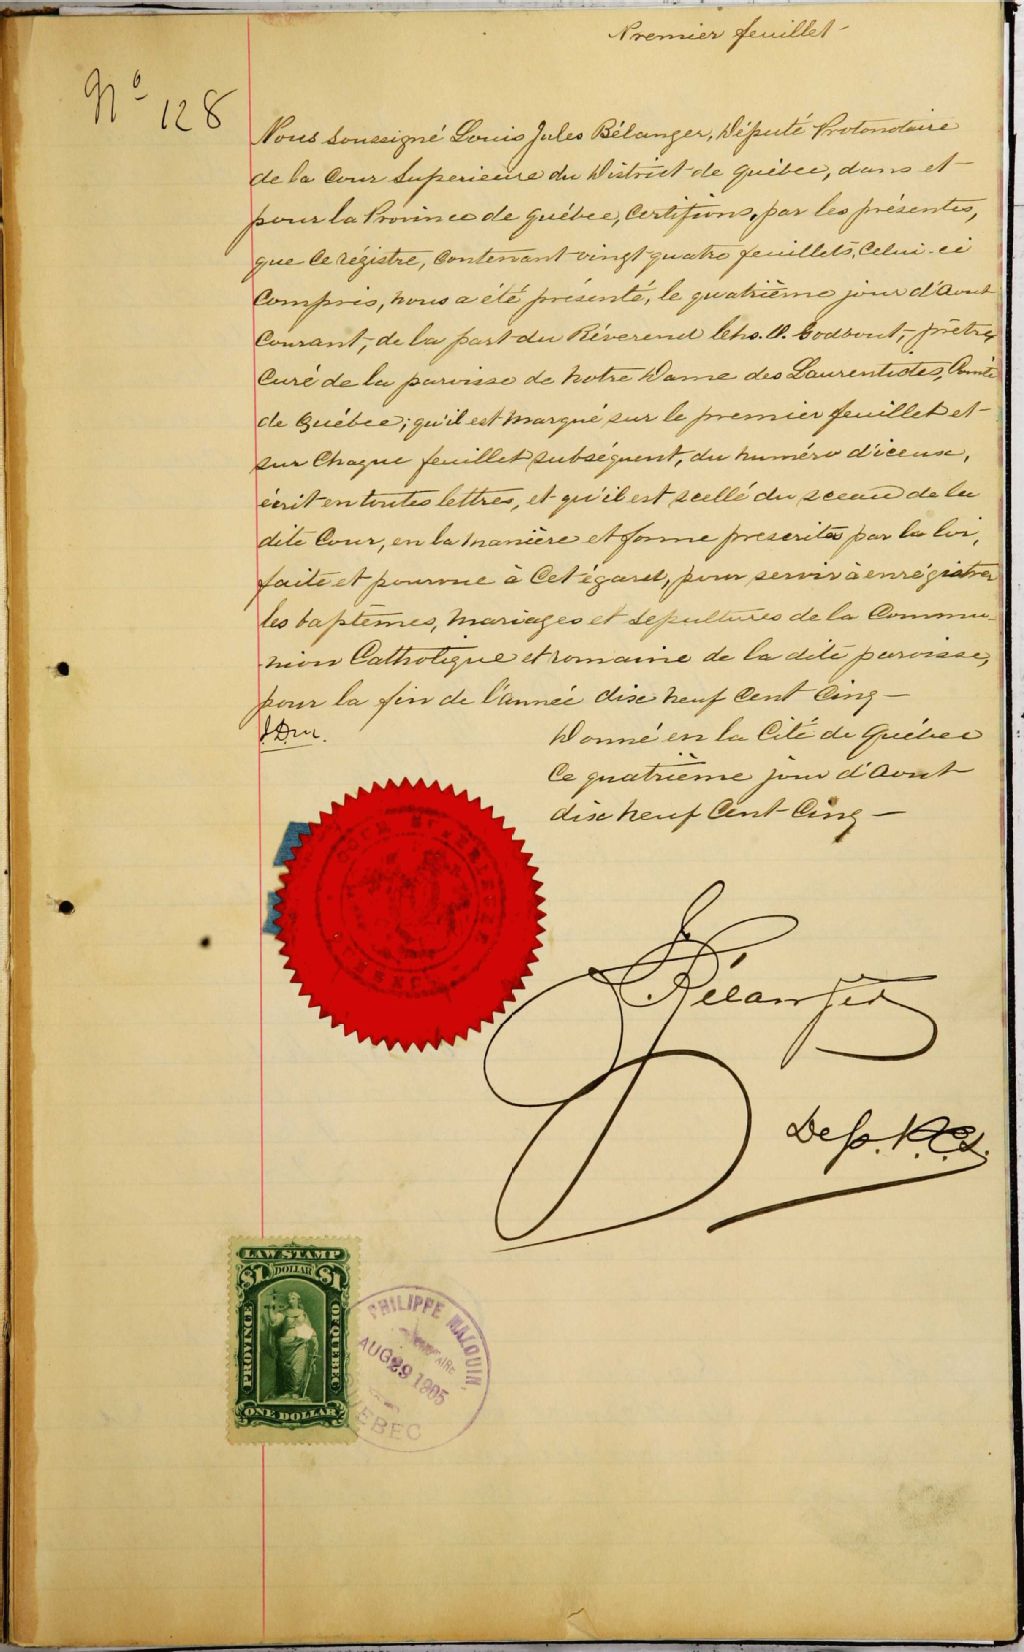 Premier feuillet
No 128
Nous soussigné Louis Jules Bélanger, Député Protonotaire
de la Cour Superieure du District de Québec, dans et
pour la Province de Québec, Certifions, par les présentes,
que ce régistre, contenant vingt quatre feuillets, celui-ci
compris, nous a été présenté, le quatrième jour d'Aout
courant, de la part du Réverend Chs. O. Godbout, prêtre,
Curé de la paroisse de Notre Dame des Laurentides, Comté
de Québec; qu'il est marqué sur le premier feuillet et
sur chaque feuillet subséquent, du numéro d'iceux,
écrit en toutes lettres, et qu'il est scellé du sceau de la
dite Cour, en la manière et forme prescrites par la loi,
faite et pourvue à cet égard, pour servir à enrégistrer
les baptêmes, mariages et sepultures de la Commu-
nion Catholique et romaine de la dite paroisse,
pour la fin de l'année dix neuf cent cinq —
Donné en la Cité de Québec
Ce quatrième jour d'Aout
dix neuf Cent Cinq —
COUR SUPERIEURE
QUEBEC
Bélanger
Dep. P.C.S.
LAW STAMP
$1 DOLLAR $1
PROVINCE OF QUEBEC
ONE DOLLAR
PHILIPPE MALOUIN
AUG 29 1905
QUEBEC